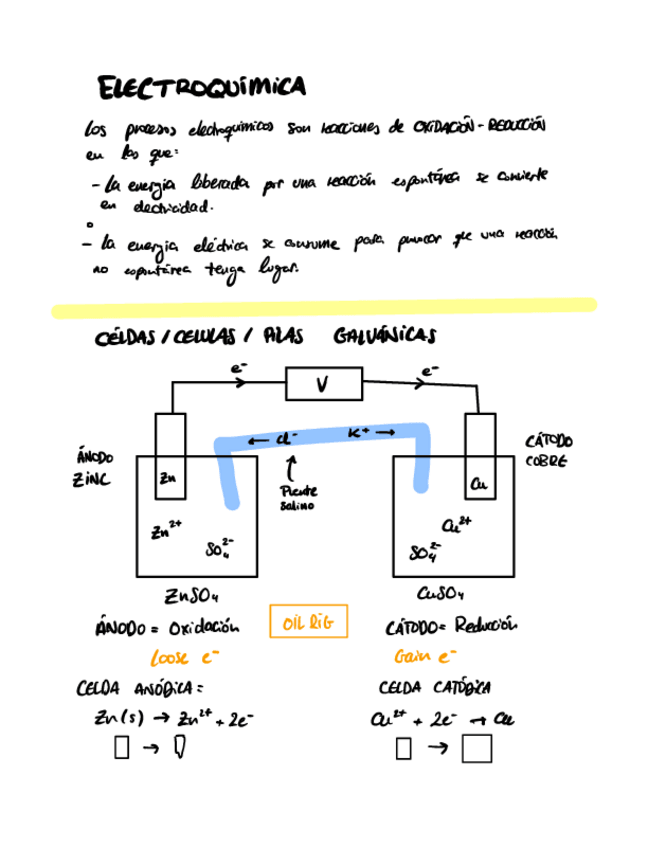 ELECTROQUÍMICA
Los procesos electroquímicos son reacciones de OXIDACIÓN-REDUCCIÓN
en los que:
- La energía liberada por una reacción espontánea se convierte
en electricidad.
o
- la energía eléctrica se consume para provocar que una reacción
no espontánea tenga lugar.
CÉLDAS / CELULAS / PILAS GALVÁNICAS
e⁻ V e⁻
← Cl⁻ K⁺ →
ÁNODO
ZINC
CÁTODO
COBRE
Zn
Puente
salino
Cu
Zn²⁺
SO₄²⁻
Cu²⁺
SO₄²⁻
ZnSO₄
CuSO₄
ÁNODO = Oxidación
OIL RIG
CÁTODO = Reducción
Loose e⁻
Gain e⁻
CELDA ANÓDICA =
CELDA CATÓDICA
Zn(s) → Zn²⁺ + 2e⁻
Cu²⁺ + 2e⁻ → Cu